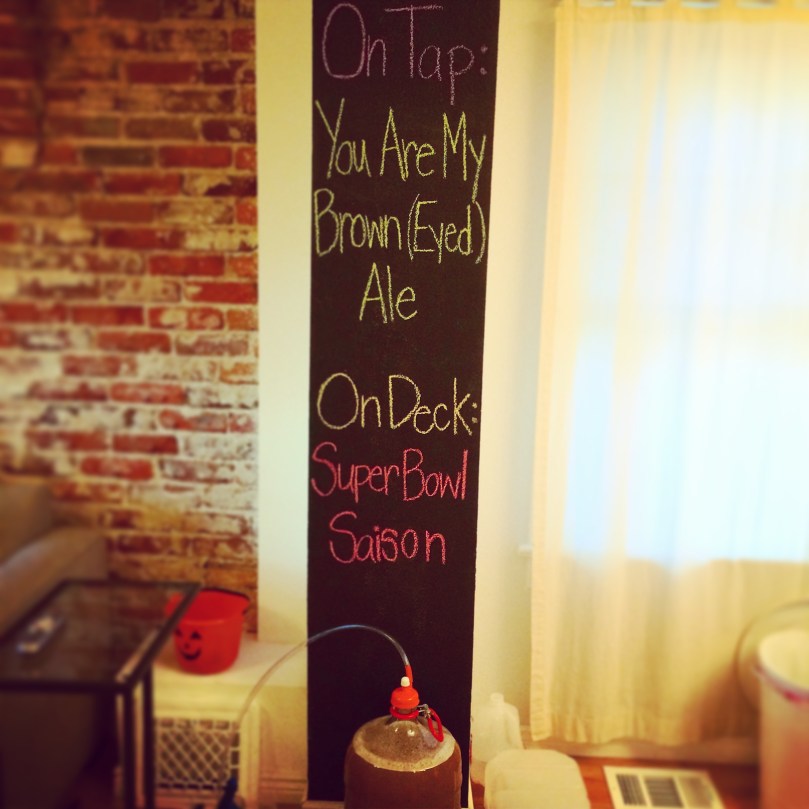 On Tap:
You Are My
Brown (Eyed)
Ale
On Deck:
Super Bowl
Saison